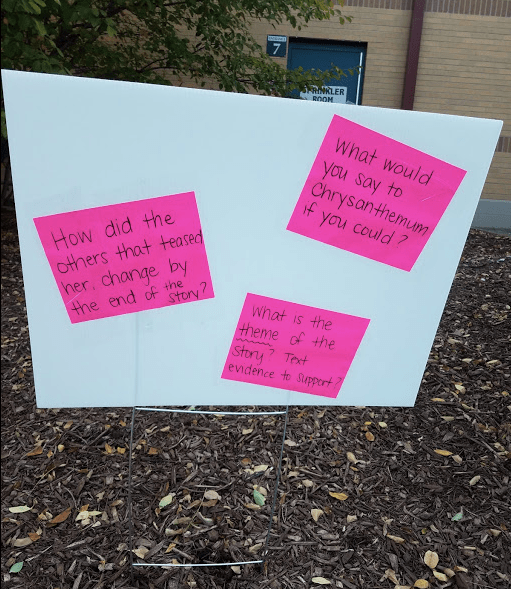 7
SPRINKLER
ROOM
What would
you say to
Chrysanthemum
if you could?
How did the
others that teased
her, change by
the end of the
story?
What is the
theme of the
story? Text
evidence to support?